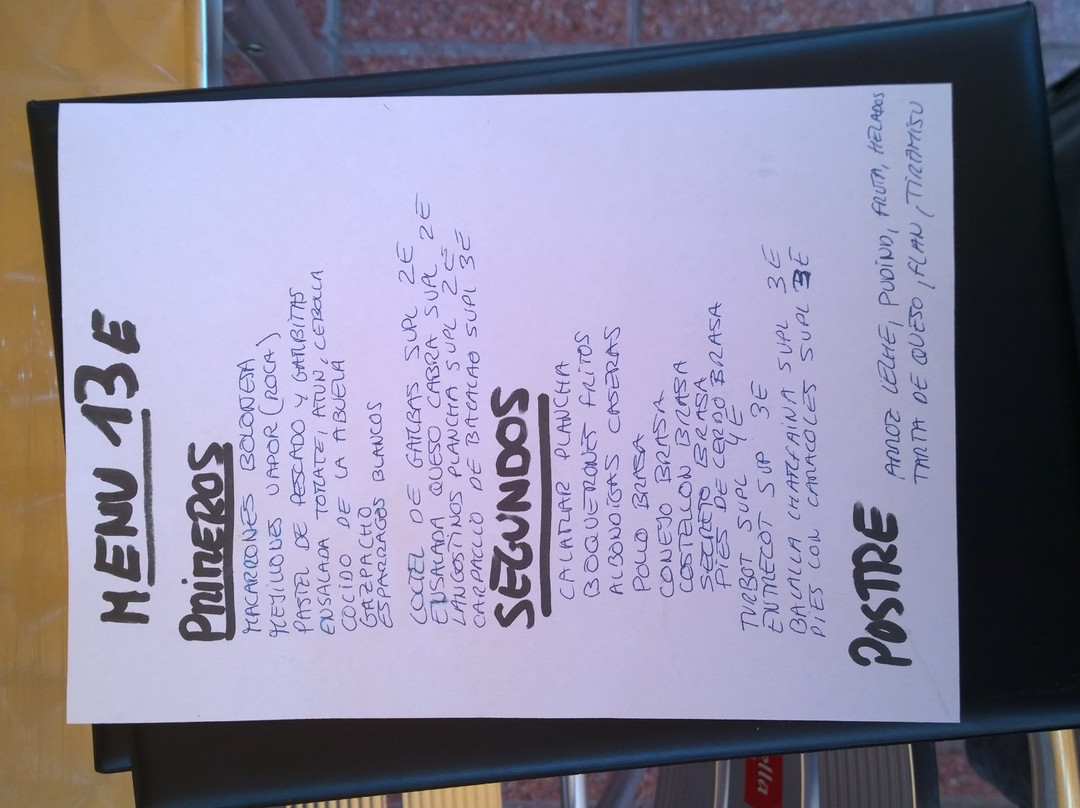 MENU 13E
PRIMEROS
MACARRONES BOLOÑESA
MEJILLONES VAPOR (ROCA)
PASTEL DE PESCADO Y GAMBITAS
ENSALADA TOMATE, ATUN, CEBOLLA
COCIDO DE LA ABUELA
GAZPACHO
ESPARRAGOS BLANCOS
COCTEL DE GAMBAS SUPL 2E
ENSALADA QUESO CABRA SUPL 2E
LANGOSTINOS PLANCHA SUPL 2E
CARPACCIO DE BACALAO SUPL 3E
SEGUNDOS
CALAMAR PLANCHA
BOQUERONES FRITOS
ALBONDIGAS CASERAS
POLLO BRASA
CONEJO BRASA
COSTELLON BRASA
SECRETO BRASA
PIES DE CERDO BRASA
TURBOT SUPL 4E
ENTRECOT SUP 3E
BACALLA CHANFAINA SUPL 3E
PIES CON CARACOLES SUPL 3E
POSTRE
ARROZ LECHE, PUDING, FRUTA, HELADOS
TARTA DE QUESO, FLAN, TIRAMISU
ella